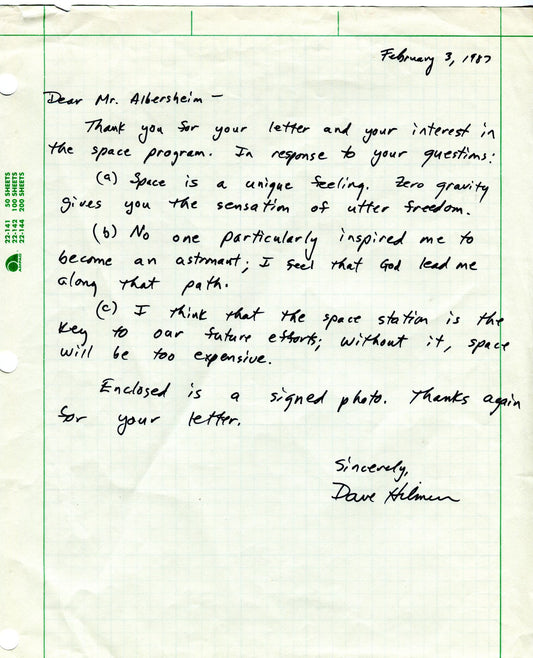 February 3, 1987
Dear Mr. Albersheim —
Thank you for your letter and your interest in
the space program. In response to your questions:
(a) Space is a unique feeling. Zero gravity
gives you the sensation of utter freedom.
(b) No one particularly inspired me to
become an astronaut; I feel that God lead me
along that path.
(c) I think that the space station is the
key to our future efforts; without it, space
will be too expensive.
Enclosed is a signed photo. Thanks again
for your letter.
Sincerely,
Dave Hilmers
22-141 50 SHEETS
22-142 100 SHEETS
22-144 200 SHEETS